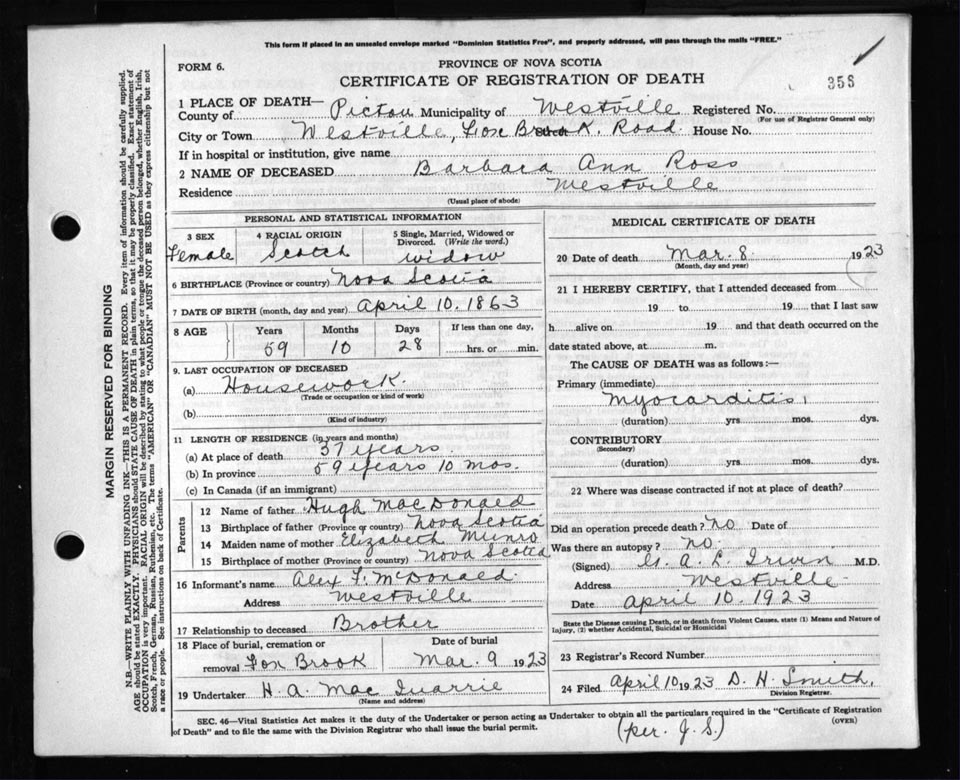 This form if placed in an unsealed envelope marked "Dominion Statistics Free", and properly addressed, will pass through the mails "FREE."
FORM 6.
PROVINCE OF NOVA SCOTIA
CERTIFICATE OF REGISTRATION OF DEATH
358
1 PLACE OF DEATH—
County of Pictou Municipality of Westville Registered No.
(For use of Registrar General only)
City or Town Westville, Fox Brook. Road. House No.
If in hospital or institution, give name
2 NAME OF DECEASED Barbara Ann Ross
Residence Westville
(Usual place of abode)
MARGIN RESERVED FOR BINDING
N.B.—WRITE PLAINLY WITH UNFADING INK—THIS IS A PERMANENT RECORD. Every item of information should be carefully supplied.
AGE should be stated EXACTLY. PHYSICIANS should STATE CAUSE OF DEATH in plain terms, so that it may be properly classified. Exact statement of
OCCUPATION is very important. RACIAL ORIGIN will be described by stating to what people or tongue the deceased person belonged, whether English, Irish,
Scotch, French, German, Russian, Ruthenian, etc. The terms "AMERICAN" OR "CANADIAN" MUST NOT BE USED as they express citizenship but not
a race or people. See instructions on back of Certificate.
PERSONAL AND STATISTICAL INFORMATION
3 SEX
Female
4 RACIAL ORIGIN
Scotch
5 Single, Married, Widowed or
Divorced. (Write the word.)
widow
6 BIRTHPLACE (Province or country) Nova Scotia
7 DATE OF BIRTH (month, day and year) April 10. 1863
8 AGE
Years
59
Months
10
Days
28
If less than one day,
hrs. or min.
9. LAST OCCUPATION OF DECEASED
(a) Housework.
(Trade or occupation or kind of work)
(b)
(Kind of industry)
11 LENGTH OF RESIDENCE (in years and months)
(a) At place of death 37 years.
(b) In province 59 years 10 mos.
(c) In Canada (if an immigrant)
Parents
12 Name of father Hugh MacDonald
13 Birthplace of father (Province or country) Nova Scotia
14 Maiden name of mother Elizabeth Munro
15 Birthplace of mother (Province or country) Nova Scotia
16 Informant's name Alex F. McDonald.
Address Westville
17 Relationship to deceased Brother
18 Place of burial, cremation or
removal Fox Brook
Date of burial
Mar. 9 1923
19 Undertaker H. A. Mac Quarrie
(Name and address)
MEDICAL CERTIFICATE OF DEATH
20 Date of death Mar. 8. 1923
(Month, day and year)
21 I HEREBY CERTIFY, that I attended deceased from
19 to 19 that I last saw
h alive on 19 and that death occurred on the
date stated above, at m.
The CAUSE OF DEATH was as follows:—
Primary (immediate)
Myocarditis,
(duration) yrs mos. dys.
CONTRIBUTORY
(Secondary)
(duration) yrs mos. dys.
22 Where was disease contracted if not at place of death?
Did an operation precede death? no Date of
Was there an autopsy? no.
(Signed) A. L. Irwin M.D.
Address Westville
Date April 10. 1923
State the Disease causing Death, or in death from Violent Causes, state (1) Means and Nature of
Injury, (2) whether Accidental, Suicidal or Homicidal
23 Registrar's Record Number
24 Filed April 10 1923 D. H. Smith,
Division Registrar.
SEC. 46—Vital Statistics Act makes it the duty of the Undertaker or person acting as Undertaker to obtain all the particulars required in the "Certificate of Registration
of Death" and to file the same with the Division Registrar who shall issue the burial permit.
(OVER)
(per. J. S.)